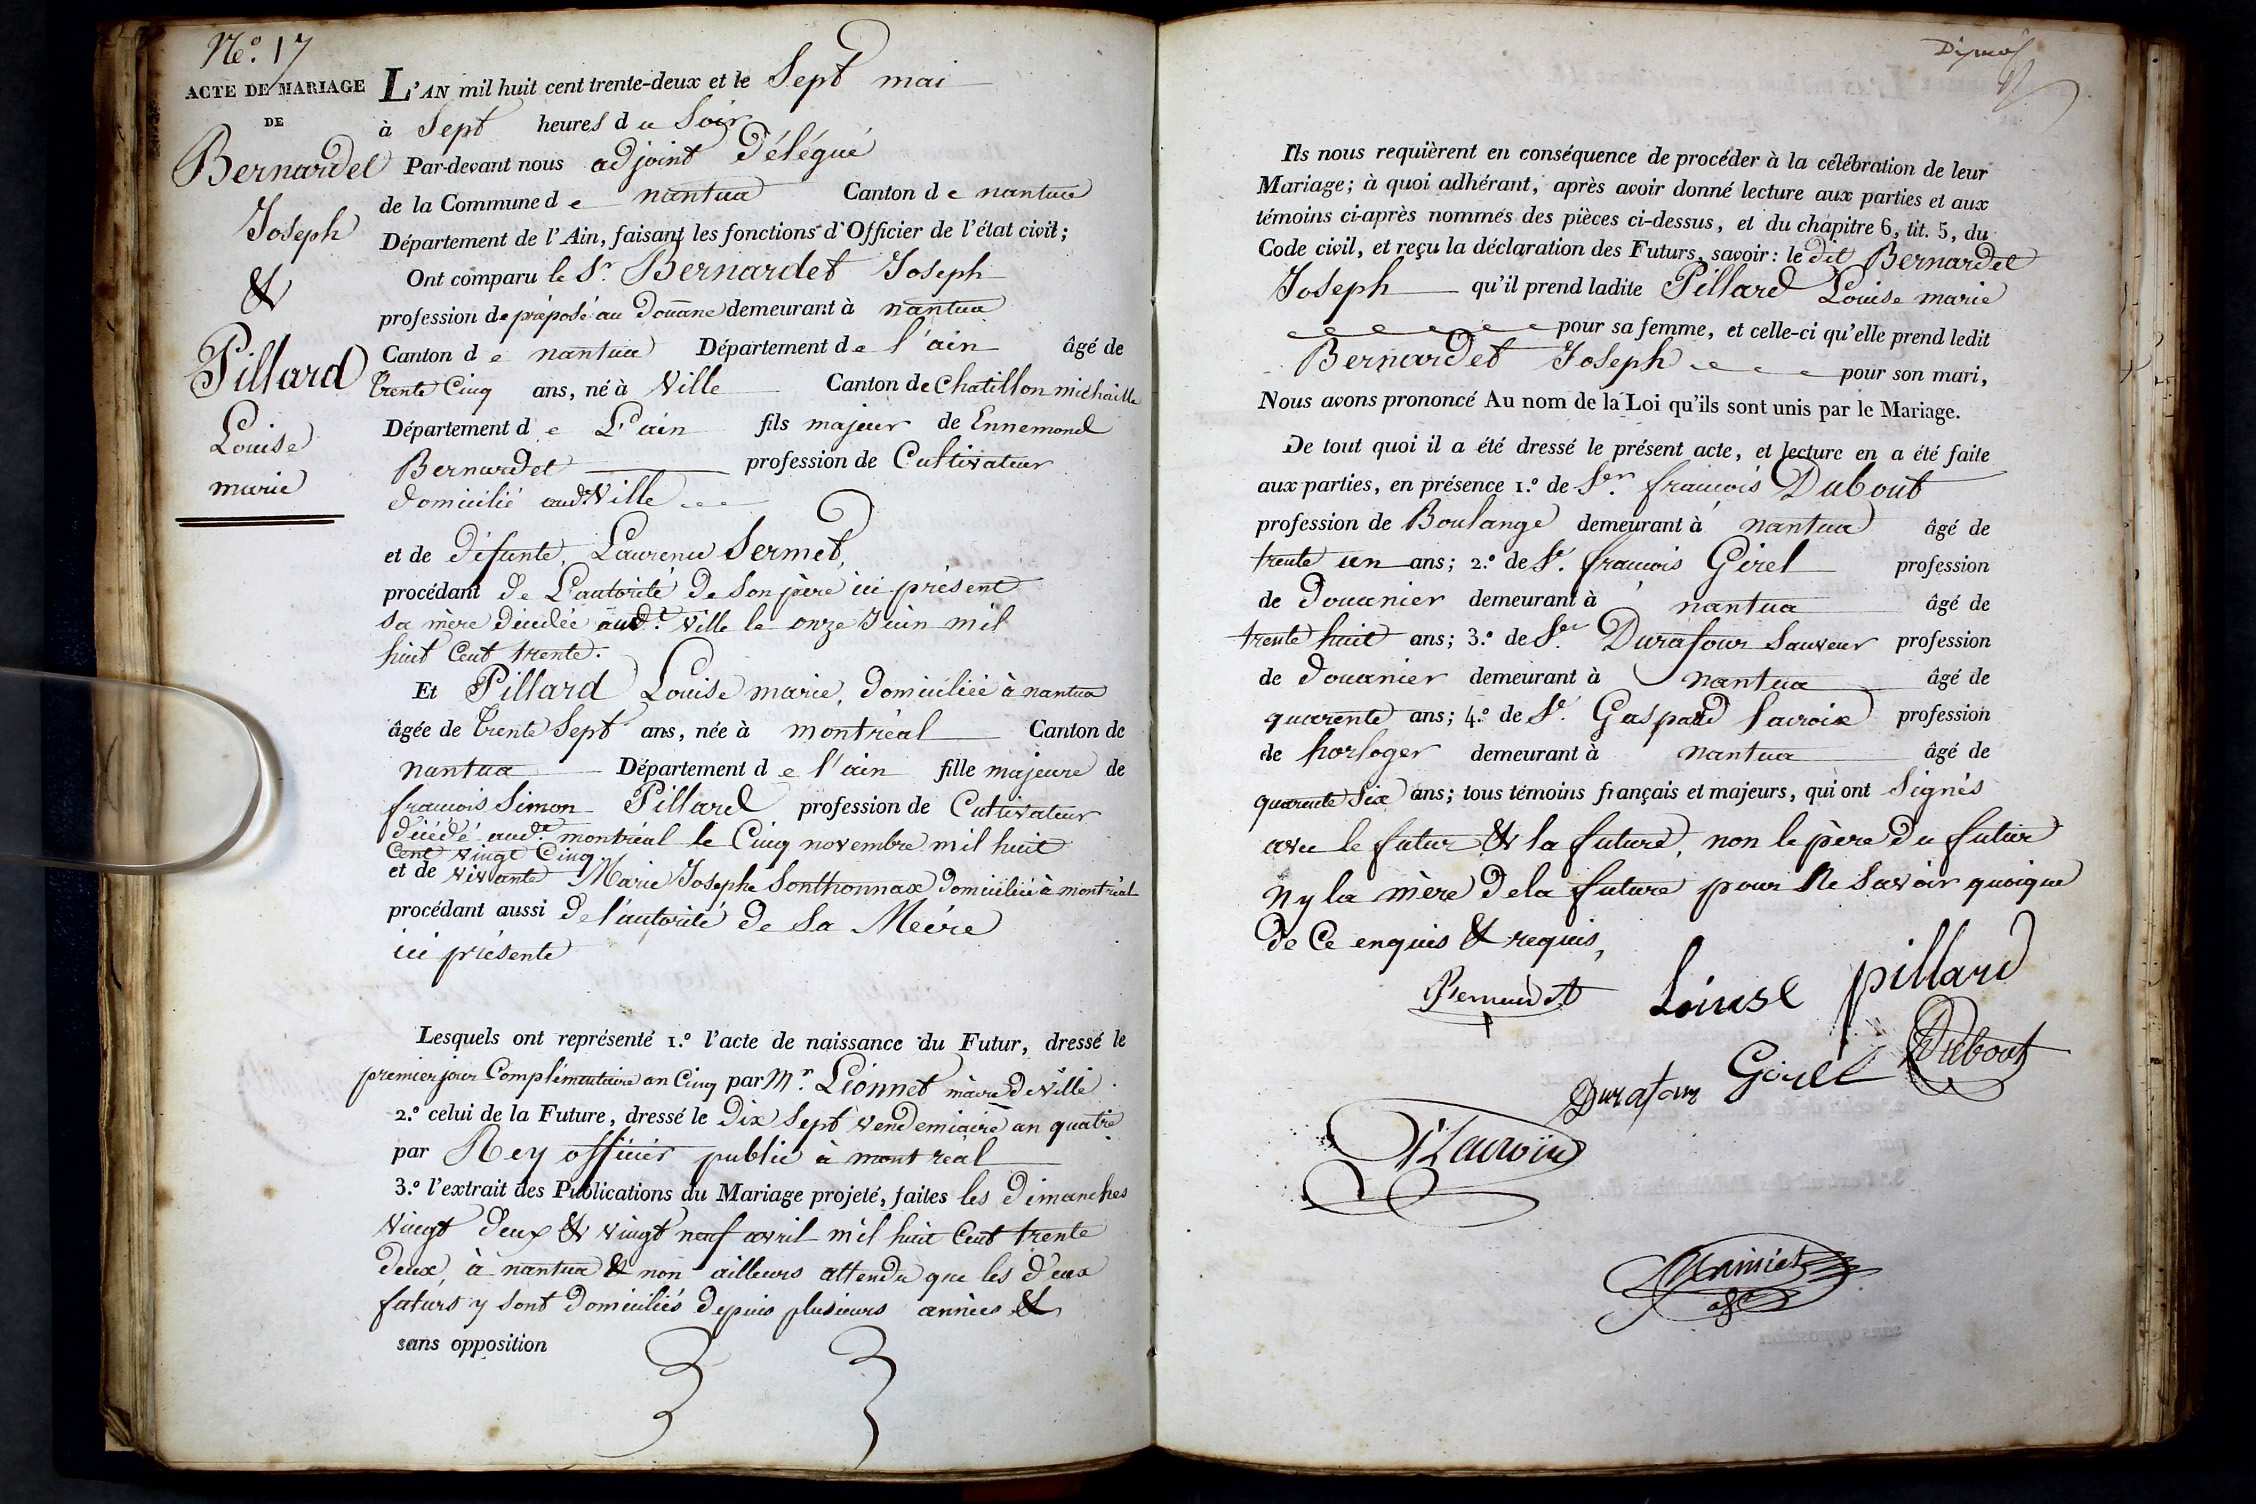 N.o 17
ACTE DE MARIAGE
DE
Bernardet
Joseph
&
Pillard
Louise
marie
L'AN mil huit cent trente-deux et le Sept mai
à Sept heures du Soir
Par-devant nous adjoint Délégué
de la Commune de nantua Canton de nantua
Département de l'Ain, faisant les fonctions d'Officier de l'état civil;
Ont comparu le Sr. Bernardet Joseph
profession de préposé au Doüane demeurant à nantua
Canton de nantua Département de l'ain âgé de
trente Cinq ans, né à Ville Canton de Chatillon michaille
Département de L'ain fils majeur de Ennemond
Bernardet profession de Cultivateur
domicilié audt Ville
et de Défunte Laurence Sermet,
procédant de L'autorité de Son père ici présent
Sa mère décédée audt. Ville le onze Juin mil
huit Cent trente.
Et Pillard Louise marie, domiciliée à nantua
âgée de trente Sept ans, née à montréal Canton de
nantua Département de l'ain fille majeure de
francois Simon Pillard profession de Cultivateur
décédé audt. montréal le Cinq novembre mil huit
Cent vingt Cinq
et de vivante Marie Josephe Sonthonnax domiciliée à montréal
procédant aussi de l'autorité de Sa Meére
ici présente
Lesquels ont représenté 1.o l'acte de naissance du Futur, dressé le
premier jour Complémentaire an Cinq par Mr. Lionnet maire de Ville
2.o celui de la Future, dressé le Dix Sept vendemiaire an quatre
par Rey officier public à montreal
3.o l'extrait des Publications du Mariage projeté, faites les Dimanches
vingt deux & vingt neuf avril mil huit Cent trente
deux à nantua & non ailleurs attendu que les deux
futurs y sont Domiciliés depuis plusieurs années &
sans opposition
Ils nous requièrent en conséquence de procéder à la célébration de leur
Mariage; à quoi adhérant, après avoir donné lecture aux parties et aux
témoins ci-après nommés des pièces ci-dessus, et du chapitre 6, tit. 5, du
Code civil, et reçu la déclaration des Futurs, savoir: le dit Bernardet
Joseph qu'il prend ladite Pillard Louise marie
pour sa femme, et celle-ci qu'elle prend ledit
Bernardet Joseph pour son mari,
Nous avons prononcé Au nom de la Loi qu'ils sont unis par le Mariage.
De tout quoi il a été dressé le présent acte, et lecture en a été faite
aux parties, en présence 1.o de Ser. francois Dubout
profession de Boulange demeurant à nantua âgé de
trente un ans; 2.o de Sr. francois Girel profession
de Douanier demeurant à nantua âgé de
trente huit ans; 3.o de Ser. Durafour Sauveur profession
de Douanier demeurant à nantua âgé de
quarente ans; 4.o de Sr. Gaspard Lacroix profession
de horloger demeurant à nantua âgé de
quarente Six ans; tous témoins français et majeurs, qui ont Signés
avec le futur & la future, non le père du futur
ny la mère de la future pour Ne Savoir quoique
de Ce enquis & requis,
Bernardet Louise pillard
Durafour Girel Dubout
Lacroix